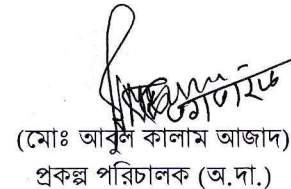 (মোঃ আবুল কালাম আজাদ)
প্রকল্প পরিচালক (অ.দা.)